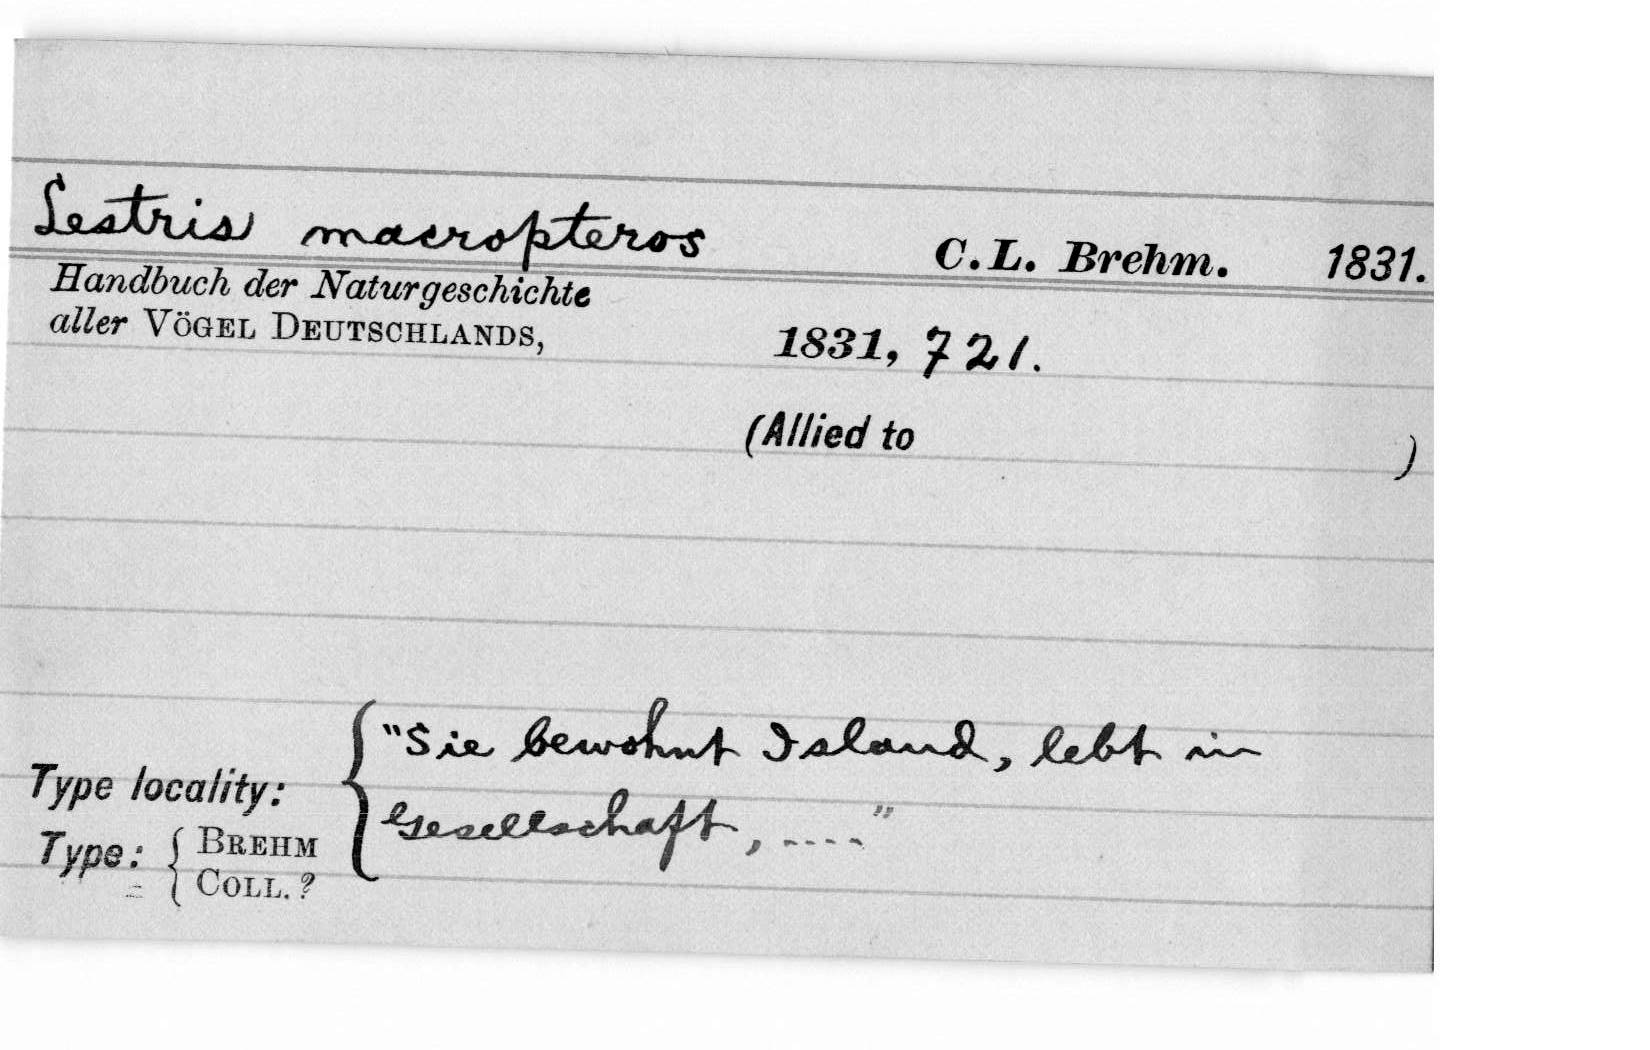 Lestris macropteros C.L. Brehm. 1831.
Handbuch der Naturgeschichte
aller VÖGEL DEUTSCHLANDS, 1831, 721.
(Allied to )
"Sie bewohnt Island, lebt in
Type locality:
Gesellschaft, ...."
Type: { BREHM
COLL. ?